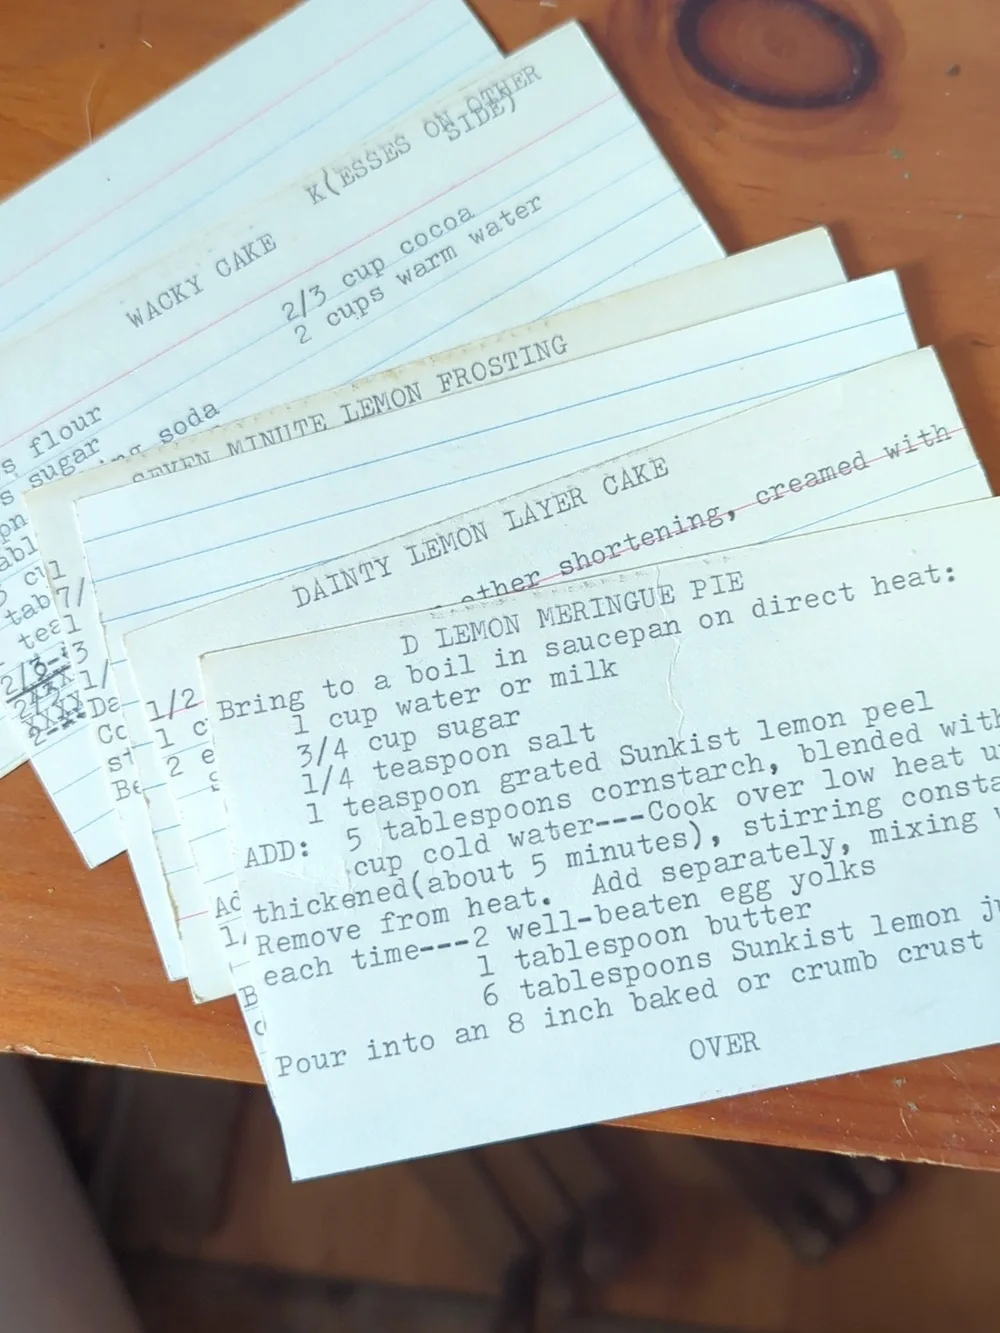 K(ESSES ON OTHER
SIDE)
WACKY CAKE
2/3 cup cocoa
2 cups warm water
s flour
s sugar
soda
SEVEN MINUTE LEMON FROSTING
DAINTY LEMON LAYER CAKE
other shortening, creamed with
1/2
1 c
2 e
D LEMON MERINGUE PIE
Bring to a boil in saucepan on direct heat:
1 cup water or milk
3/4 cup sugar
1/4 teaspoon salt
1 teaspoon grated Sunkist lemon peel
ADD: 5 tablespoons cornstarch, blended with
cup cold water---Cook over low heat u
thickened(about 5 minutes), stirring consta
Remove from heat. Add separately, mixing
each time---2 well-beaten egg yolks
1 tablespoon butter
6 tablespoons Sunkist lemon
Pour into an 8 inch baked or crumb crust
OVER